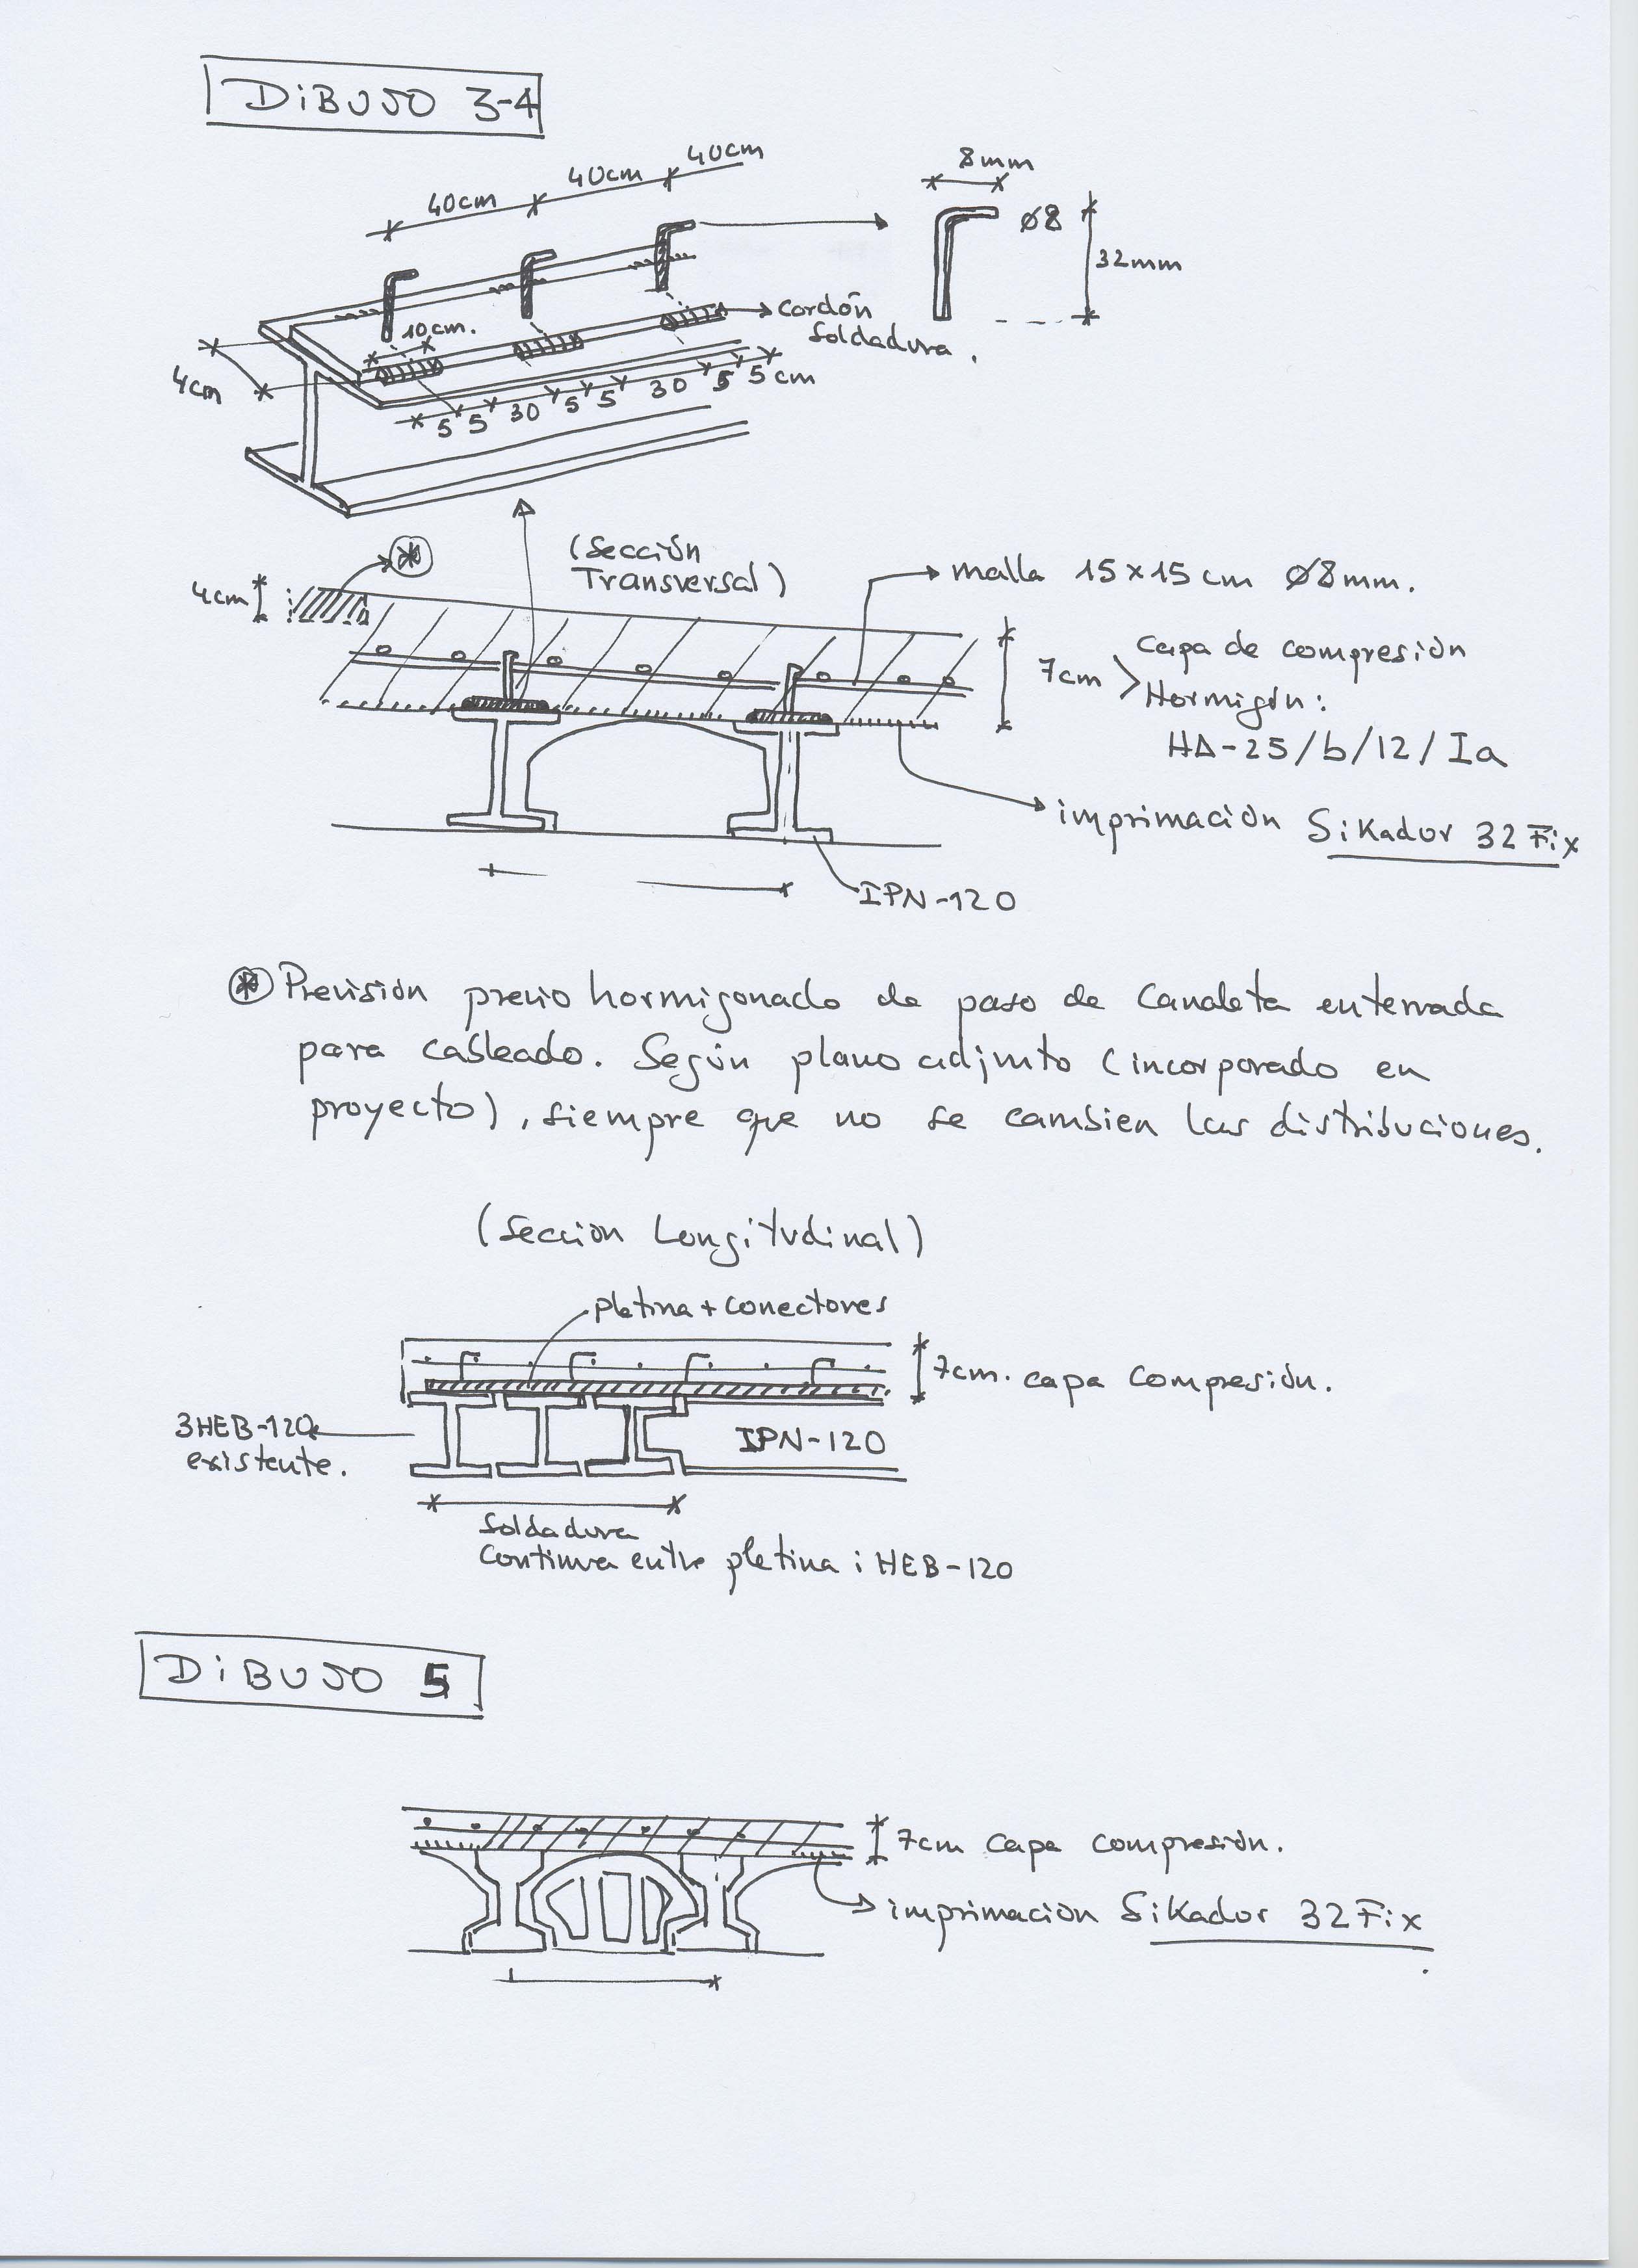 DiBUJO 3-4
40cm 40cm 40cm
8mm
Ø8
32mm
10cm.
cordón
soldadura.
4cm
5 5 30 5 5 30 5 5 cm
(Sección
Transversal)
malla 15x15cm Ø8mm.
4cm
7cm
Capa de compresión
Hormigón:
HA-25/b/12/Ia
imprimación Sikador 32 Fix
IPN-120
Previsión previo hormigonado de paso de Canaleta enterrada
para cableado. Según plano adjunto (incorporado en
proyecto), siempre que no se cambien las distribuciones.
(Sección Longitudinal)
pletina + conectores
7cm. capa compresión.
3HEB-120
existente.
IPN-120
Soldadura
continua entre pletina i HEB-120
DiBUJO 5
7cm capa compresión.
imprimación Sikador 32 Fix